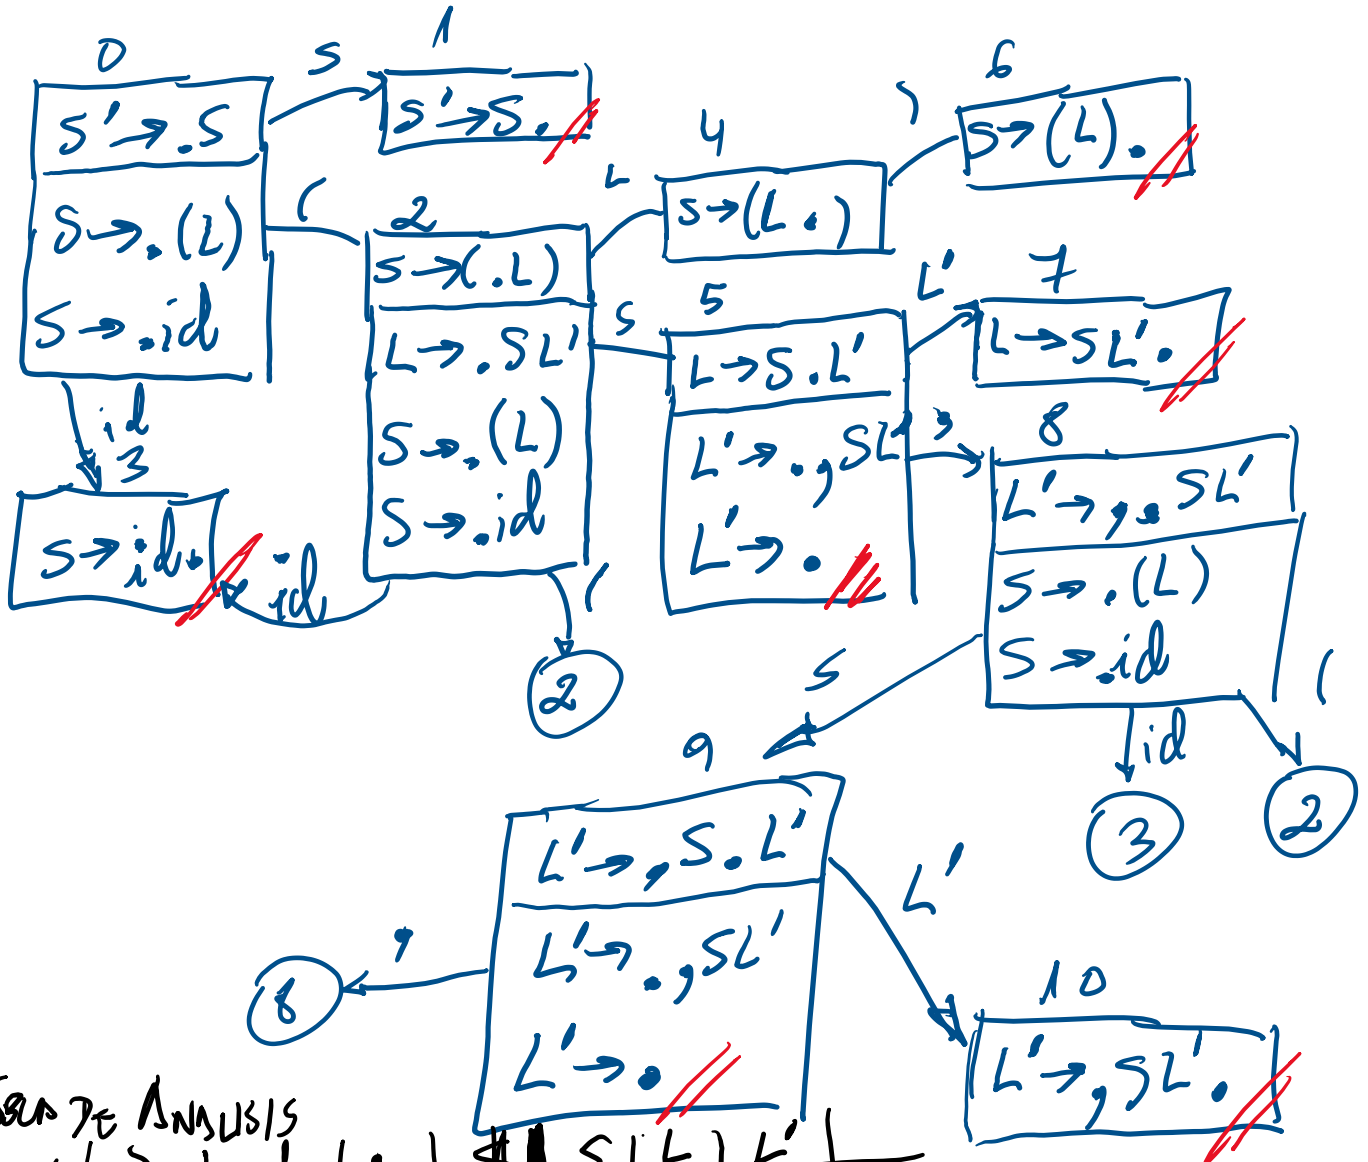 0
S' → .S
S → .(L)
S → .id
S
1
S' → S.
(
id
3
S → id.
2
S → (.L)
L → .SL'
S → .(L)
S → .id
id
(
2
L
4
S → (L.)
)
6
S → (L).
S
5
L → S.L'
L' → .,SL'
L' → .
L'
7
L → SL'.
,
8
L' → ,.SL'
S → .(L)
S → .id
S
id
3
(
2
9
L' → ,S.L'
L' → .,SL'
L' → .
,
8
L'
10
L' → ,SL'.
DE ANALISIS